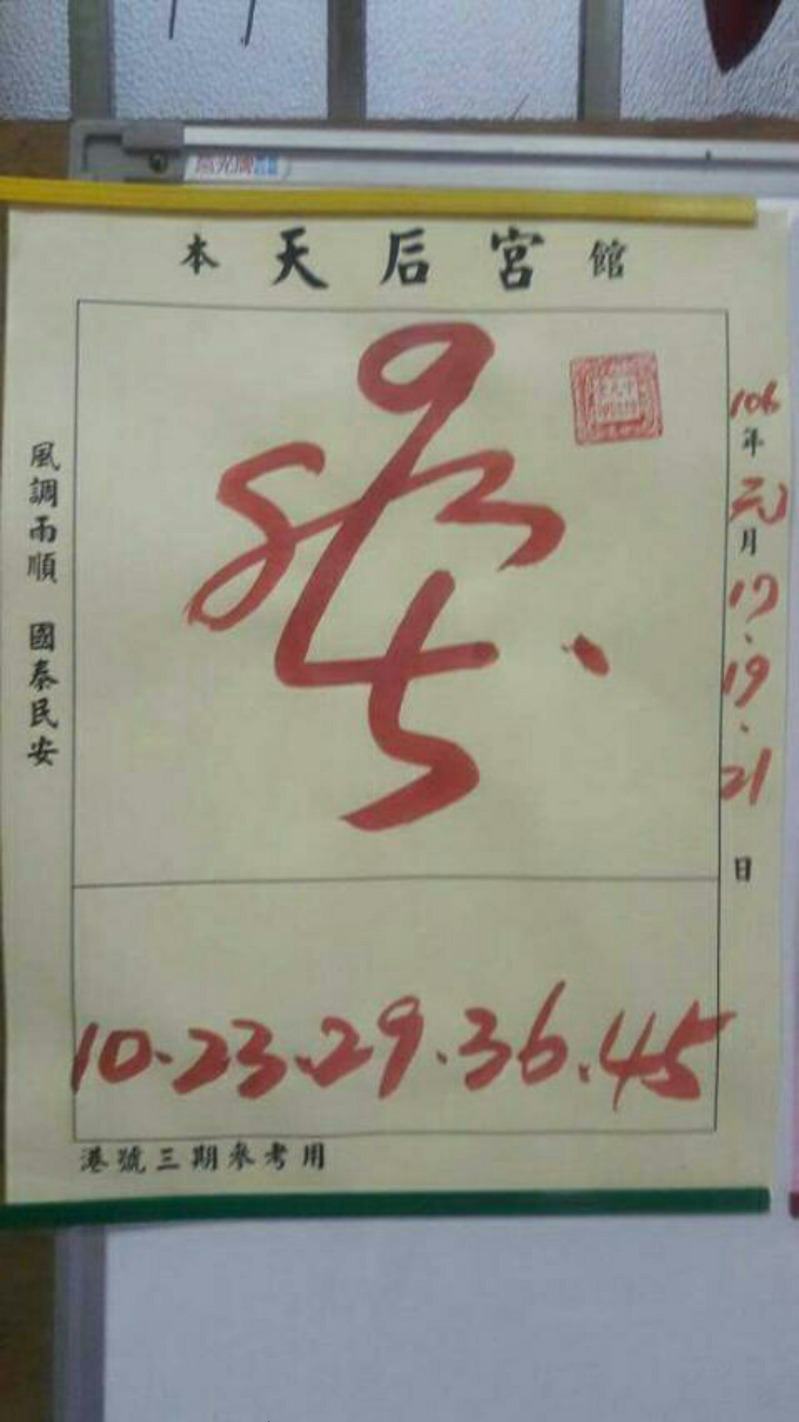 本天后宮館
106年元月17、19、21日
風調雨順 國泰民安
10、23、29、36、45
港號三期參考用